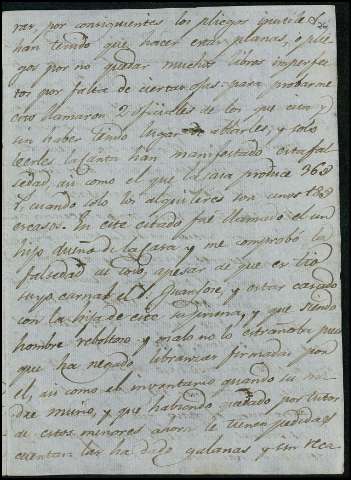 rar, por consiguientes los pliegos inutiles,
han tenido que hacer estas planas, o plie-
gos por no quedar muchos libros imperfec-
tos por falta de ciertas ojas: para probarme
esto llamaron 2 oficiales de los que cita y
sin haber tenido lugar de ablarles, y solo
leerles la santa han manifestado esta fal-
sedad, asi como el que la casa produce 368
y cuando solo los alquileres son unos 188
escasos. En este estado fué llamado el un
hijo dueño de la casa y me comprobó la
falsedad de esto, apesar de que es tio
suyo carnal el D. Juan Jose, y estar casado
con la hija de este sugeto, y que siendo
hombre reboltoso y malo no lo estrañaba pues
que ha negado libranzas firmadas por
el, asi como el inventario quando su ma-
dre murio, y que habiendo quedado por tutor
de estos menores ahora le tienen pedidas
cuentas las ha dado galanas y sin reca